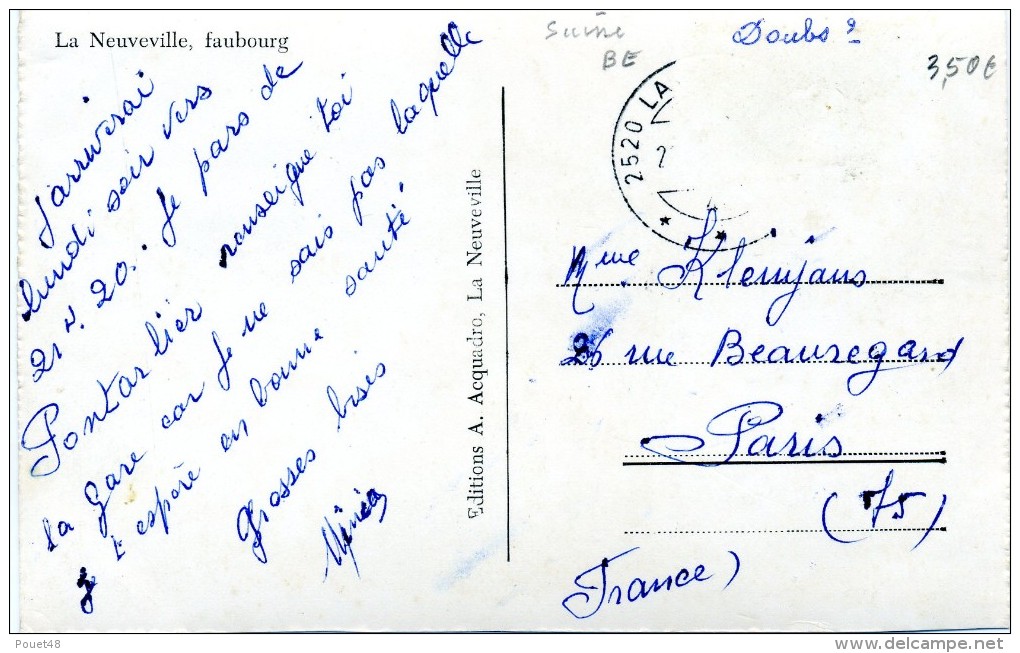 La Neuveville, faubourg
Suisse
BE
Doubs ?
3,50€
2520 LA
2
J'arriverai
lundi soir vers
21 h. 20. Je pars de
Pontarlier renseigne toi
car je ne sais pas laquelle
la gare
J t'espère en bonne santé
Grosses bises
Editions A. Acquadro, La Neuveville
Mme. Klemjans
26 rue Beauregard
Paris
(75)
France)
Pouet48
www.delcampe.net